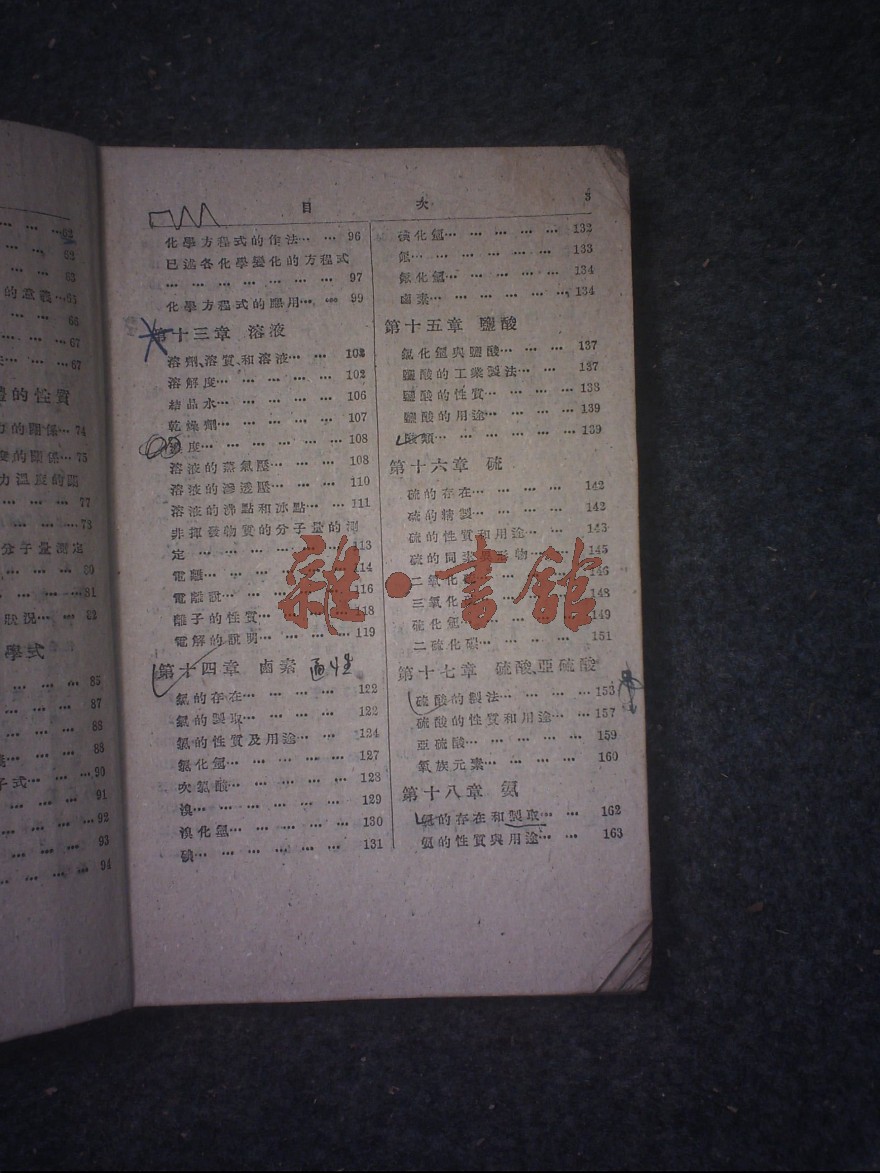 62
62
63
的意義…63
66
…67
67
的性質
的關係…74
的關係…75
力溫度的關
77
…73
分子量測定
80
…81
狀況… 82
學式
85
87
88
88
子式…90
91
…92
93
94
目 次 3
化學方程式的作法…… 96
已述各化學變化的方程式
… … … … … … … 97
化學方程式的應用… … 99
第十三章 溶液
溶劑、溶質、和溶液… … 102
溶解度… … … … … 102
結晶水… … … … … 106
乾燥劑… … … … … 107
度… … … … … … 108
溶液的蒸氣壓… … … 108
溶液的滲透壓… … … 110
溶液的沸點和冰點… …111
非揮發物質的分子量的測
定 … … … … … …113
電離… … … … … … 114
電離說… … … … … 116
離子的性質… … … … 118
電解的說明… … … … 119
第十四章 鹵素
氯的存在… … … … 122
氯的製取… … … … 122
氯的性質及用途… … 124
氯化氫… … … … … 127
次氯酸… … … … … 128
溴… … … … … … 129
溴化氫… … … … … 130
碘… … … … … … 131
碘化氫… … … … … 132
氟… … … … … … 133
氟化氫… … … … … 134
鹵素… … … … … … 134
第十五章 鹽酸
氯化氫與鹽酸… … … 137
鹽酸的工業製法… … 137
鹽酸的性質… … … … 138
鹽酸的用途… … … … 139
酸類… … … … … … 139
第十六章 硫
硫的存在… … … … 142
硫的精製… … … … 142
硫的性質和用途… … 143
硫的同素異形物… … 145
二氧化硫… … … … 146
三氧化硫… … … … 148
硫化氫… … … … … 149
二硫化碳… … … … 151
第十七章 硫酸、亞硫酸
硫酸的製法… … … …153
硫酸的性質和用途… …157
亞硫酸… … … … … 159
氧族元素… … … … 160
第十八章 氨
氨的存在和製取… … 162
氨的性質與用途… … 163
雜·書館